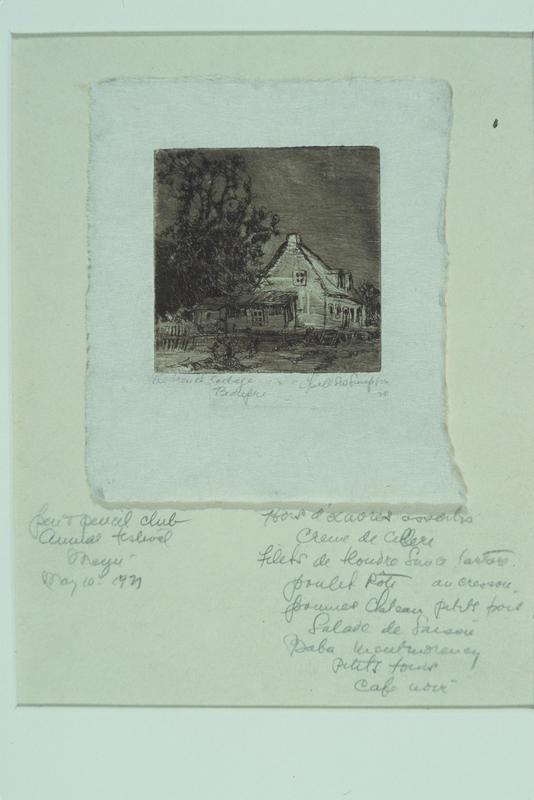 Cottage
Beaupre
Pen & pencil club
Annual festival
Menu
May 10 - 1929
Hors d'œuvres assortis
Creme de Celleri
Filets de Sauce Tartare
poulet Rôti au cresson
pommes Chateau petits pois
Salade de Saison
Baba Montmorency
petits fours
Cafe noir